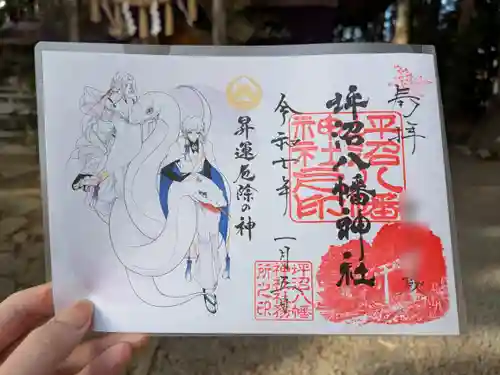 奉拝
坪沼八幡神社
坪沼八幡
神社之印
令和七年
一月
昇運厄除の神
坪沼八幡
神社社務
所之印